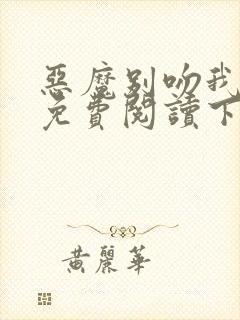 惡魔別吻我
免費閱讀下
黃麗華